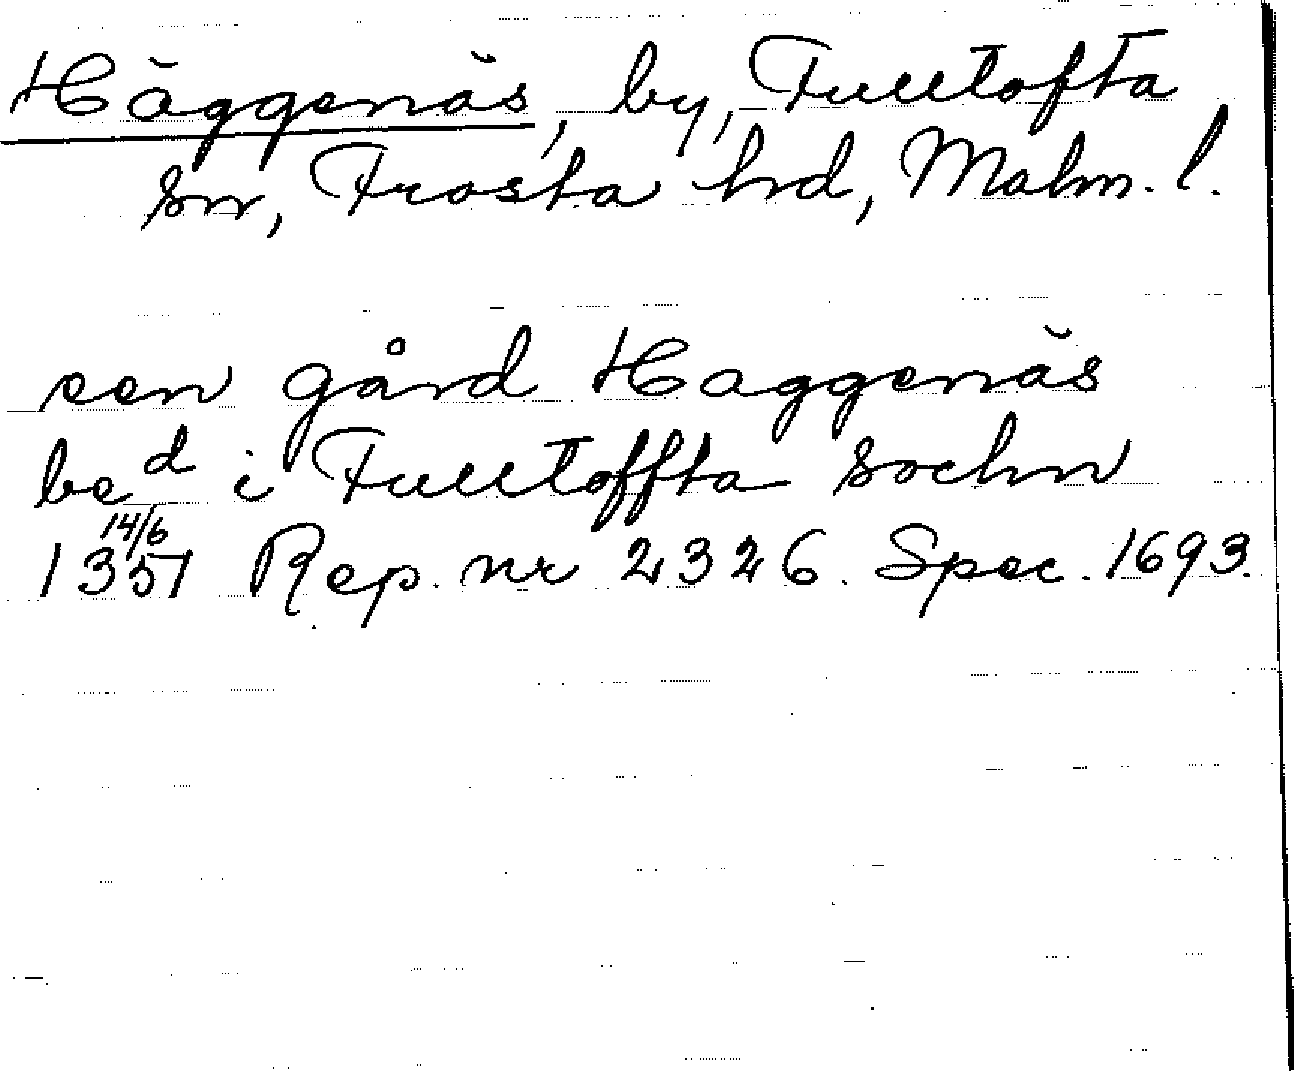 Häggenäs, by, Fulltofta
sn, Frosta hd, Malm. l.
een gård Haggenäs
be^d i Fulltoffta sochn
14/6
1351 Rep. nr 2326. Spec. 1693.